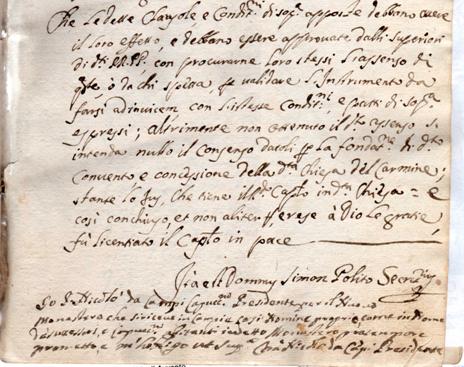 Che le dette Clausole e Condit.ni di sop.a apposte debbano avere
il loro effetto, e debbano essere approvate dalli Superiori
di d.ti RR.PP. con procurarne loro stessi l'assenso di
q.te ò da chi spetta p validare l'Instrumento da
farsi ad invicem con l'istesse Condit.ni, e patti di sop.a
espressi; Altrimente non ottenuto il d.to assenso s'
intenda nullo il Consenso datoli p la fondat.ne di d.to
Convento e concessione della d.ta Chiesa del Carmine;
stante lo Jus, che tiene il R. Cap.lo in d.ta Chiesa = e
così conchiuso, et non aliter &, e rese à Dio le gratie,
fù licentiato il Cap.lo in pace
Ita est Dommus Simon Polito Secret.rius
Io da Campi Capuc.no Presidente per il Nuovo
Monastero che si in Campi à così nome proprio, come in nome
successori, e in detto Monastero
prometto, e da Campi Presidente